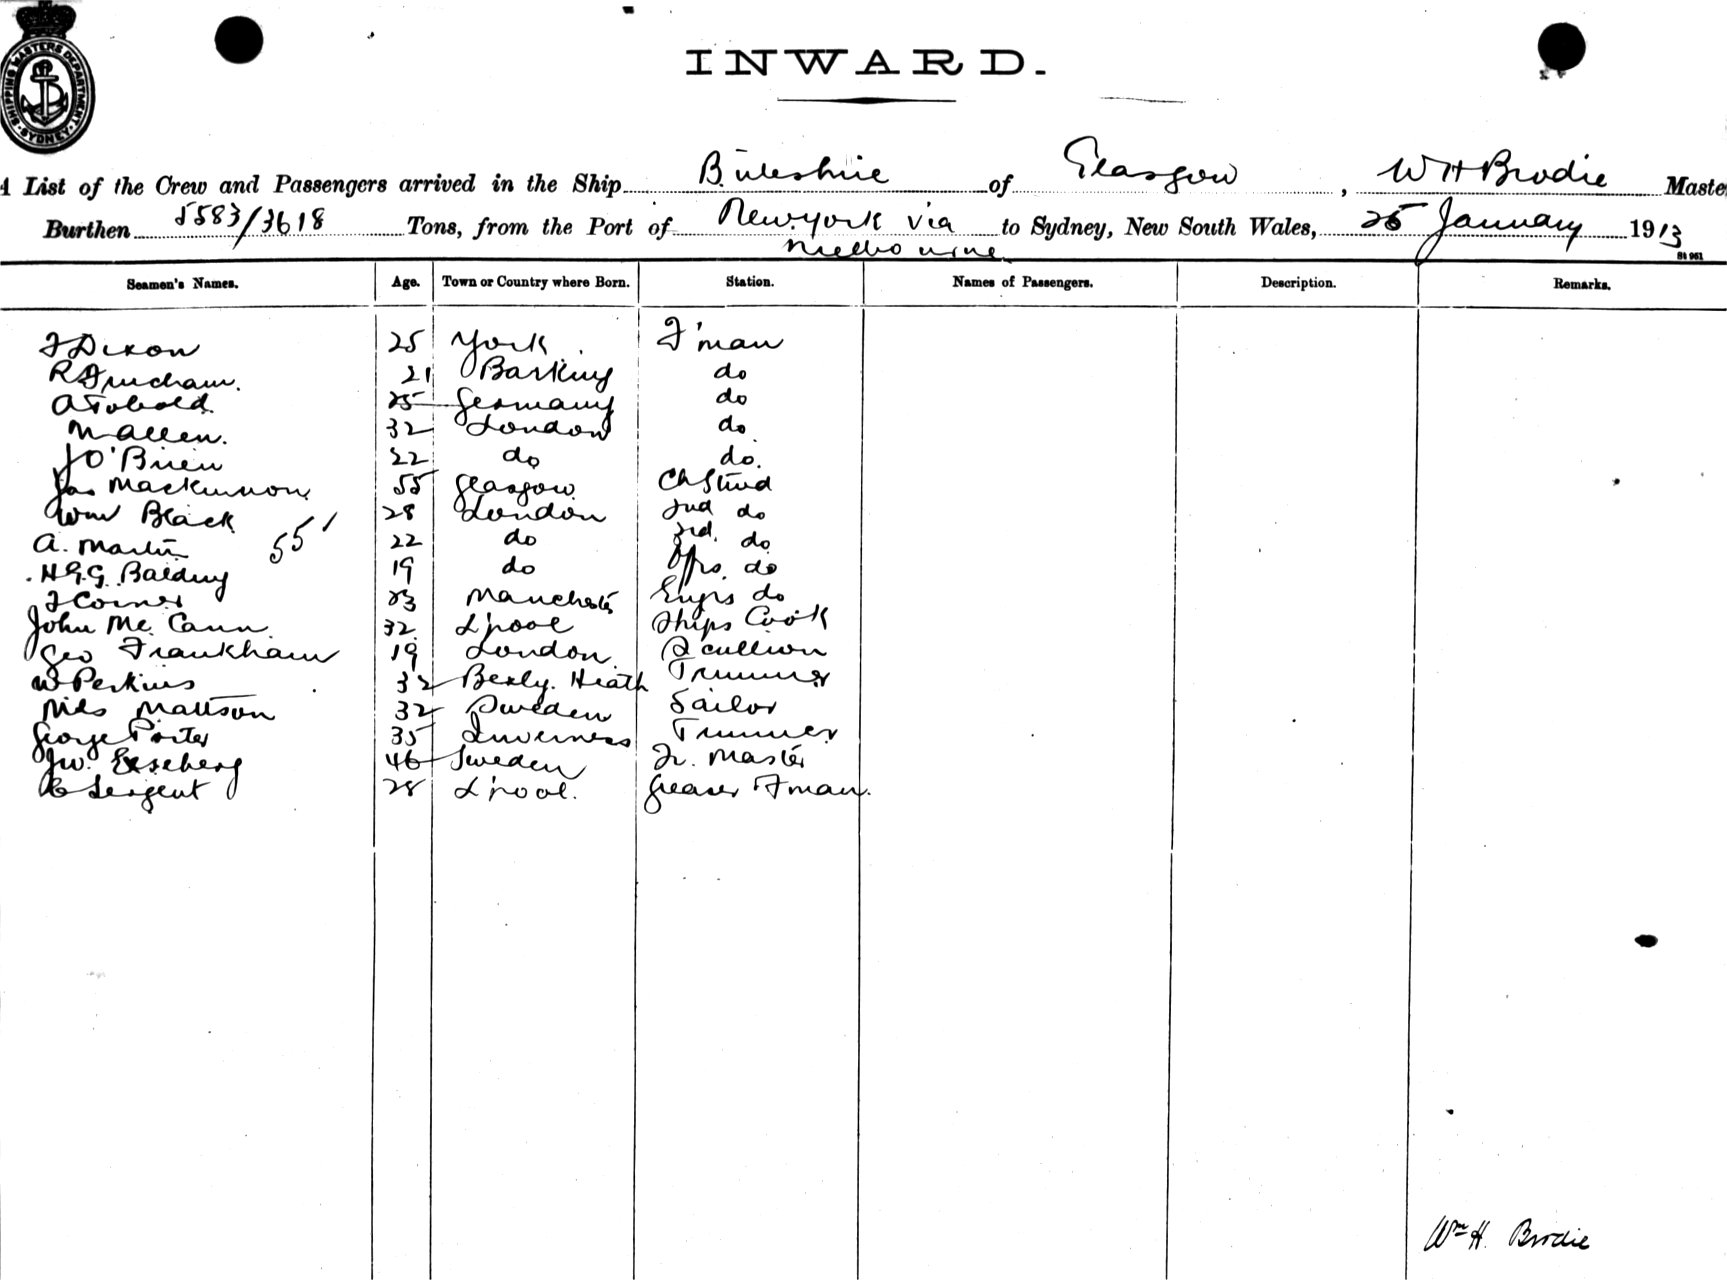 SHIPPING MASTERS DEPARTMENT SYDNEY
INWARD.
A List of the Crew and Passengers arrived in the Ship Buteshire of Glasgow, W H Brodie Maste
Burthen 5583/3618 Tons, from the Port of New York via to Sydney, New South Wales, 25 January 1913
Melbourne
St 961
Seamen's Names. Age. Town or Country where Born. Station. Names of Passengers. Description. Remarks.
F Dixon 25 York F'man
R 21 Barking do
A Tobold 25 Germany do
M Allen. 32 London do
J O'Brien 22 do do.
Jas Mackinnon 55 Glasgow Ch Stwd
Wm Black 28 London 2nd do
A. Martin 55 22 do 3rd. do
H G G Balding 19 do Offrs. do
F Corner 23 Manchester Engrs do
John Mc Cann 32 L'pool Ships Cook
Geo Frankham 19 London Scullion
W Perkins 32 Bexly Heath Trimmer
Nils Mattson 32 Sweden Sailor
George Porter 35 Inverness Trimmer
46 Sweden Master
C Sergent 28 L'pool. Greaser F'man.
Wm H. Brodie